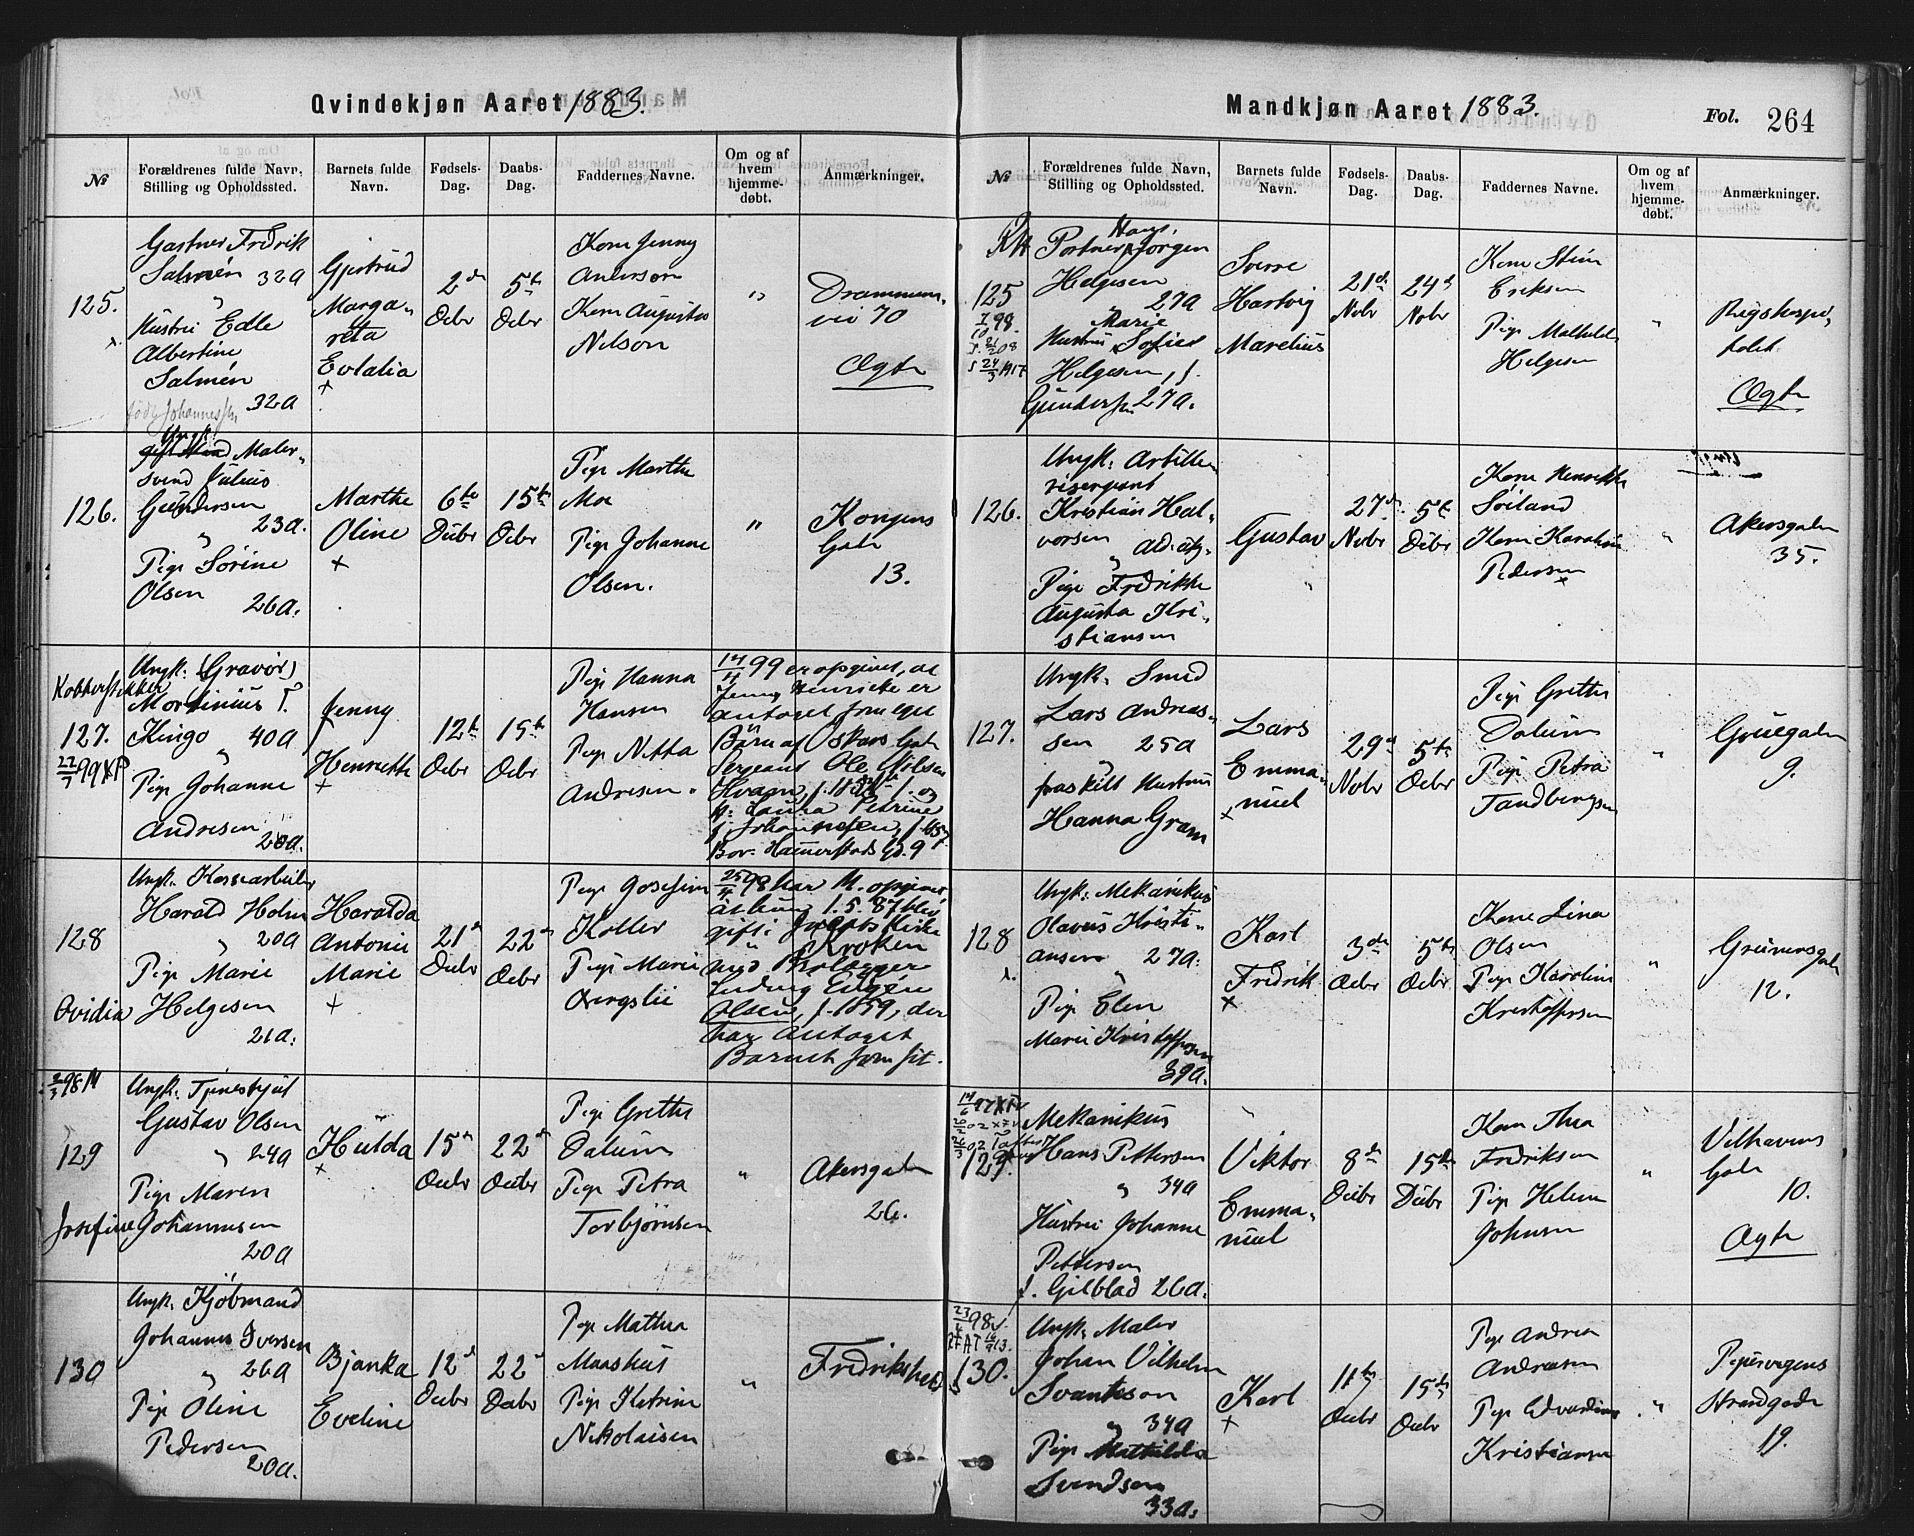 Qvindekjøn Aaret 1883.
№
Forældrenes fulde Navn,
Stilling og Opholdssted.
Barnets fulde
Navn.
Fødsels-
Dag.
Daabs-
Dag.
Faddernes Navne.
Om og af
hvem
hjemme-
døbt.
Anmærkninger.
125.
Gastner Fredrik
Salmén 32a
"
Hustru Edle
Albertine
Salmén
32a
Gjertrud
Marga-
reta
Evlalia
+
2
Decbr
5te
Decbr
Kone Jenny
Anderson
Kone Augusta
Nilson
"
Drammens-
vei 70
Ægte
126.
Ungk.
Maler-
svend Julius
Gundersen
23a.
"
Pige Sørine
Olsen 26a.
Marthe
Oline
+
6te
Decbr
15te
Decbr
Pige Marthe
Moe
Pige Johanne
Olsen.
"
Kongens
Gade
13.
Kobberstikker
127.
Ungk. (Gravør)
Mortinius T.
Kingo 40a
"
Pige Johanne
Andresen
20a.
Jenny
Henriette
+
12te
Decbr
15te
Decbr
Pige Hanna
Hansen
Pige Netta
Andresen.
99 er opgivet, at
Jenny Henriette er
antaget som eget
Barn af Oskars Gade
Sergeant Ole Nilsen
Hvaen,
H. Laura Petrine
f. Johannesen, f. 1857
Bor: Hammerstads Gd. 9
128
Ovidia
Ungk.
Harald Holm
" 20a
Pige Marie
Helgesen
21a.
Haralda
Antonie
Marie
+
21
Decbr
22
Decbr
Pige Josefine
Koller
Pige Marie
98 har M. opgivet,
at hun 1.5.87 blev
gift i Jakobs Kirke
med Brolægger
Ludvig Eugén
Olsen, f. 1859, der
har antaget
Barnet som sit.
129
Josefine
Ungk. Tjenestkjut
Gustav Olsen
" 24a
Pige Maren
Johannesen
20a
Hulda
+
15
Decbr
22
Decbr
Pige Grethe
Dalum
Pige Petra
Torbjørnsen
"
Akersgaden
26.
130
Ungk. Kjøbmand
Johannes Iversen
" 26a
Pige Oline
Pedersen
20a.
Bjanka
Eveline
12
Decbr
22
Decbr
Pige Mathea
Maashus
Pige Katrine
Nikolaisen
"
Fredrikshald
Mandkjøn Aaret 1883.
Fol. 264
№
Forældrenes fulde Navn,
Stilling og Opholdssted.
Barnets fulde
Navn.
Fødsels-
Dag.
Daabs-
Dag.
Faddernes Navne.
Om og af
hvem
hjemme-
døbt.
Anmærkninger.
125
Hans
Portner Jørgen
Helgesen
27a
Marie
Hustru Sofie
Helgesen, f.
Gundersen 27a.
Sverre
Hartvig
Marelius
21de
Novbr
24de
Novbr
Kone Stine
Eriksen
Pige Mathilde
Helgesen
"
Rigshospi-
talet.
Ægte
126.
Ungk. Artille-
risergeant
Kristian Hal-
vorsen
"
Pige Fredrikke
Augusta Kri-
stiansen
Gustav
27de
Novbr
5te
Decbr
Kone Henrikke
Søiland
Kone Karoline
Pedersen
"
Akersgaden
35.
127.
Ungk. Smed
Lars Andreas-
sen 25a
"
fraskilt Hustru
Hanna Gram
Lars
Emma-
nuel
+
29
Novbr
5te
Decbr
Pige Grethe
Dalum
Pige Petra
Tandbergsen
"
Gruegaden
9.
128
Ungk. Mekanikus
Olavus Kristi-
ansen 27a.
"
Pige Elen
Marie Kristoffersen
39a.
Karl
Fredrik
+
3de
Decbr
5te
Decbr
Kone Lina
Olsen
Pige Karoline
Kristoffersen
"
Grünersgade
12.
129.
Mekanikus
Hans Pettersen
" 34a
Hustru Johanne
Pettersen
f. Gilblad 26a.
Viktor
Emma-
nuel
8de
Decbr
15te
Decbr
Kone Thea
Fredriksen
Pige Helene
Johnsen
"
Vilhavens
Gade
10.
Ægte
130.
Ungk. Maler
Johan Vilhelm
Svantesson
" 34a
Pige Mathilda
Svendsen
33a.
Karl
+
11te
Decbr
15te
Decbr
Pige Andrea
Andreasen
Pige Edvardine
Kristiansen
"
Pipervigens
Strandgade
19.